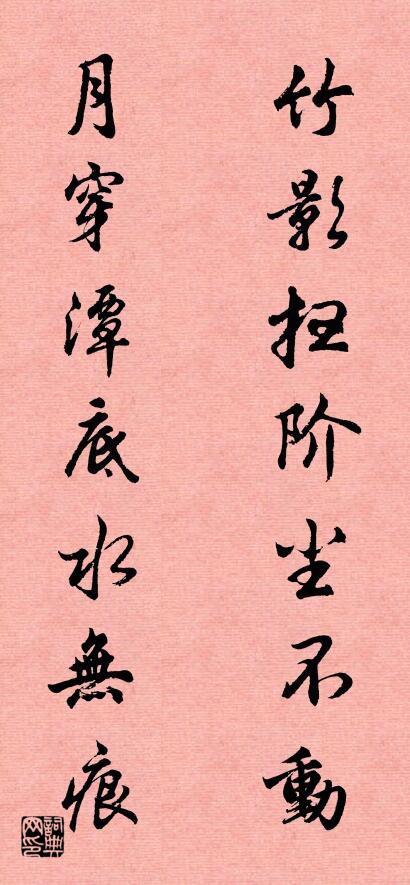 竹影扫阶尘不動
月穿潭底水無痕
詞典网印